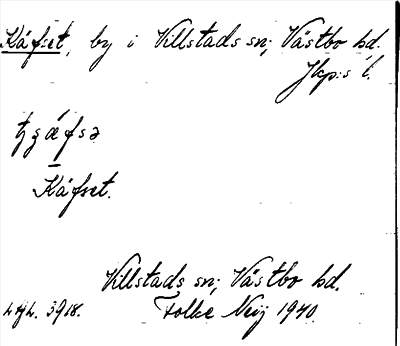 Käfset, by i Villstads sn; Västbo hd.
Jkp:s l.
Käfset.
Villstads sn; Västbo hd.
3918. Folke Neij 1940.